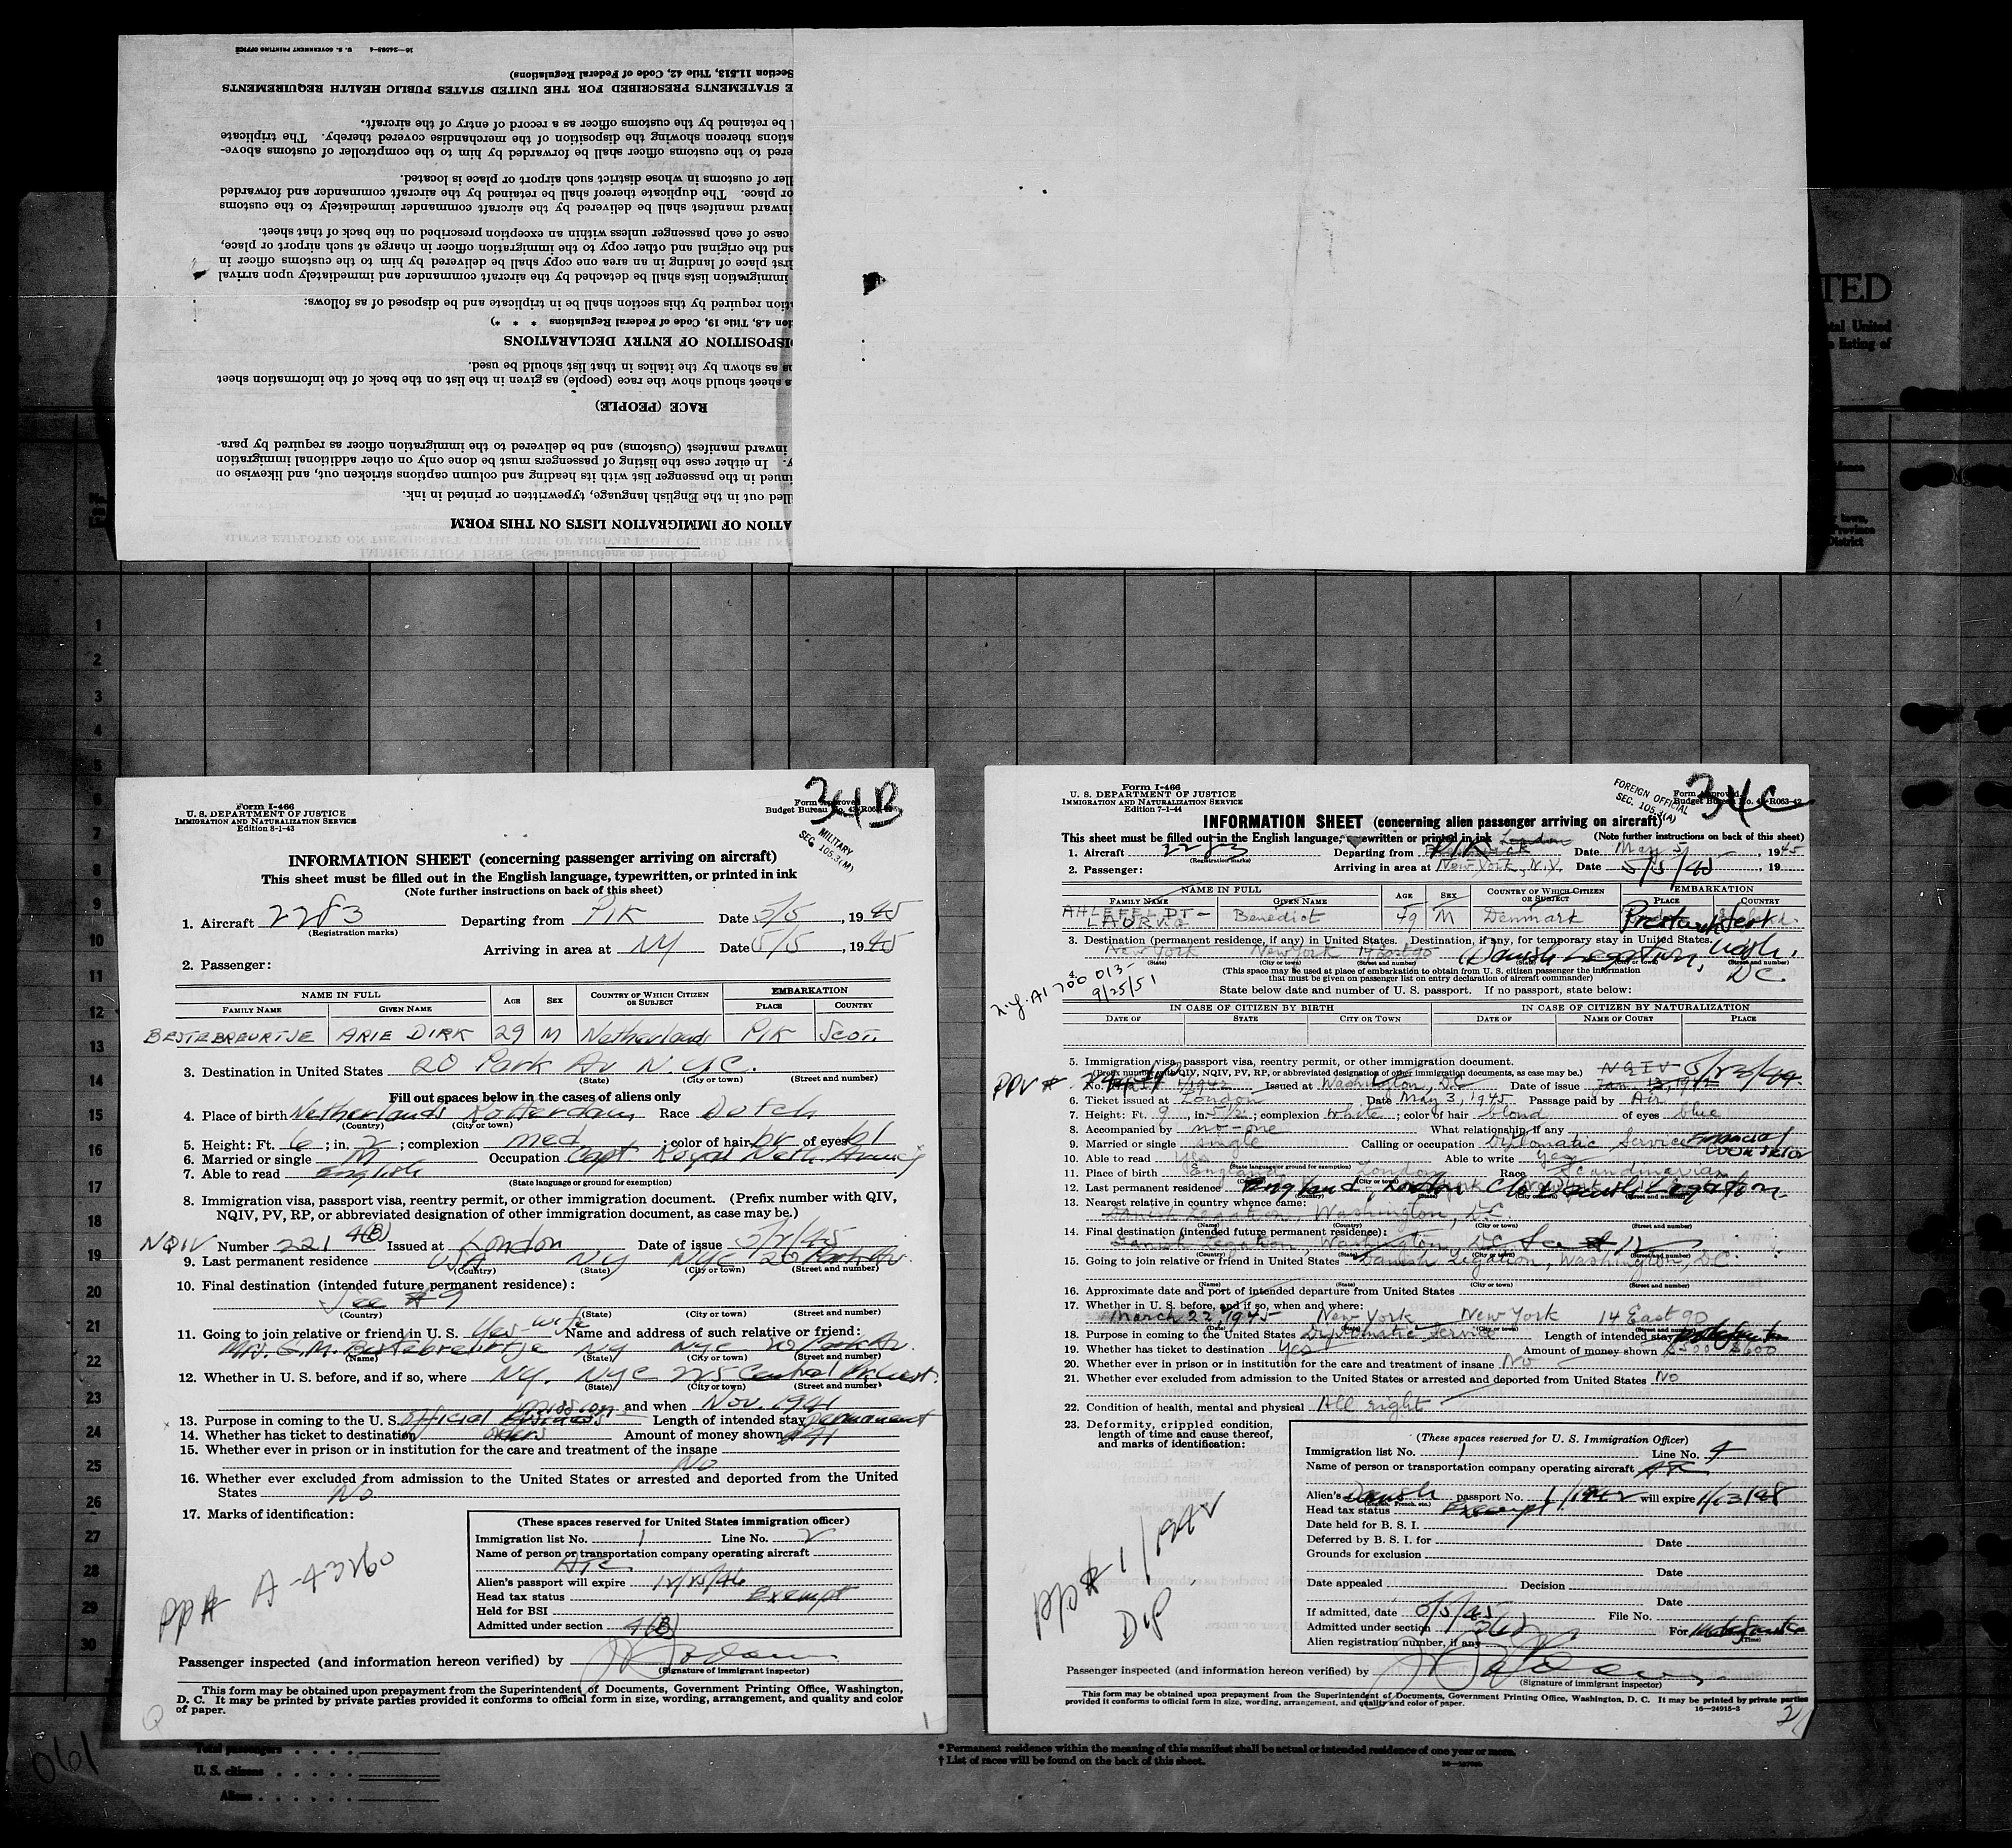 16—24563-4 U. S. GOVERNMENT PRINTING OFFICE
Section 11.513, Title 42, Code of Federal Regulations)
E STATEMENTS PRESCRIBED FOR THE UNITED STATES PUBLIC HEALTH REQUIREMENTS
l be retained by the customs officer as a record of entry of the aircraft.
ations thereon showing the disposition of the merchandise covered thereby. The triplicate
ered to the customs officer shall be forwarded by him to the comptroller of customs above-
ller of customs in whose district such airport or place is located.
or place. The duplicate thereof shall be retained by the aircraft commander and forwarded
inward manifest shall be delivered by the aircraft commander immediately to the customs
case of each passenger unless within an exception prescribed on the back of that sheet.
and the original and other copy to the immigration officer in charge at such airport or place,
rst place of landing in an area one copy shall be delivered by him to the customs officer in
immigration lists shall be detached by the aircraft commander and immediately upon arrival
ation required by this section shall be in triplicate and be disposed of as follows:
ion 4.8, Title 19, Code of Federal Regulations * * *)
DISPOSITION OF ENTRY DECLARATIONS
as as shown by the italics in that list should be used.
s sheet should show the race (people) as given in the list on the back of the information sheet
RACE (PEOPLE)
inward manifest (Customs) and be delivered to the immigration officer as required by para-
y. In either case the listing of passengers must be done only on other additional immigration
nued in the passenger list with its heading and column captions stricken out, and likewise on
lled out in the English language, typewritten or printed in ink.
ATION OF IMMIGRATION LISTS ON THIS FORM
TED
tal United
listing of
town,
Province
District
1
2
3
4
5
6
7
8
9
10
11
12
13
14
15
16
17
18
19
20
21
22
23
24
25
26
27
28
29
30
34B
Form I-466
U. S. DEPARTMENT OF JUSTICE
IMMIGRATION AND NATURALIZATION SERVICE
Edition 8-1-43
Form Approved
Budget Bureau No. 43-R063-42
MILITARY
SEC 105.3(M)
INFORMATION SHEET (concerning passenger arriving on aircraft)
This sheet must be filled out in the English language, typewritten, or printed in ink
(Note further instructions on back of this sheet)
1. Aircraft 2283 Departing from PIK Date 5/5, 1945
(Registration marks)
Arriving in area at NY Date 5/5, 1945
2. Passenger:
NAME IN FULL AGE SEX COUNTRY OF WHICH CITIZEN OR SUBJECT EMBARKATION
FAMILY NAME GIVEN NAME PLACE COUNTRY
BESTEBREURTJE ARIE DIRK 29 M Netherlands PIK Scot.
3. Destination in United States 20 Park Av N.Y.C.
(State) (City or town) (Street and number)
Fill out spaces below in the cases of aliens only
4. Place of birth Netherlands Rotterdam Race Dutch
(Country) (City or town)
5. Height: Ft. 6; in. 2; complexion med; color of hair br of eyes bl
6. Married or single M Occupation Capt Royal Neth. Army
7. Able to read English
(State language or ground for exemption)
8. Immigration visa, passport visa, reentry permit, or other immigration document. (Prefix number with QIV,
NQIV, PV, RP, or abbreviated designation of other immigration document, as case may be.)
NQIV Number 221 4(B) Issued at London Date of issue 5/2/45
9. Last permanent residence USA NY NYC 20 Park Av.
(Country) (State) (City or town) (Street and number)
10. Final destination (intended future permanent residence):
See #9
(Country) (State) (City or town) (Street and number)
11. Going to join relative or friend in U. S. Yes wife Name and address of such relative or friend:
Mrs. G.M. Bestebreurtje NY NYC 20 Park Av.
(Name) (State) (City or town) (Street and number)
12. Whether in U. S. before, and if so, where NY. NYC 225 Central Pk West.
(State) (City or town) (Street and number)
and when Nov. 1941
13. Purpose in coming to the U. S. Official mission Length of intended stay permanent
14. Whether has ticket to destination orders Amount of money shown
15. Whether ever in prison or in institution for the care and treatment of the insane
No
16. Whether ever excluded from admission to the United States or arrested and deported from the United
States No
17. Marks of identification:
PP# A-43260
(These spaces reserved for United States immigration officer)
Immigration list No. 1 Line No. 2
Name of person or transportation company operating aircraft
ATC
Alien's passport will expire 12/25/46
Head tax status Exempt
Held for BSI
Admitted under section 4(B)
Passenger inspected (and information hereon verified) by
(Signature of immigrant inspector)
This form may be obtained upon prepayment from the Superintendent of Documents, Government Printing Office, Washington,
D. C. It may be printed by private parties provided it conforms to official form in size, wording, arrangement, and quality and color
of paper.
1
34C
Form I-466
U. S. DEPARTMENT OF JUSTICE
IMMIGRATION AND NATURALIZATION SERVICE
Edition 7-1-44
FOREIGN OFFICIAL
SEC. 105.3(A)
Form Approved
Budget Bureau No. 43-R063-42
INFORMATION SHEET (concerning alien passenger arriving on aircraft)
This sheet must be filled out in the English language, typewritten or printed in ink (Note further instructions on back of this sheet)
1. Aircraft 2283 Departing from PIK London Date May 5, 1945
(Registration marks)
2. Passenger: Arriving in area at New York, N.Y. Date 5/5/45, 19
NAME IN FULL AGE SEX COUNTRY OF WHICH CITIZEN OR SUBJECT EMBARKATION
FAMILY NAME GIVEN NAME PLACE COUNTRY
AHLEFELDT-LAURVIG Benedict 49 M Denmark Prestwick Scotland
3. Destination (permanent residence, if any) in United States. Destination, if any, for temporary stay in United States.
New York New York 14 East 90 (Danish Legation, Wash, D.C.
(State) (City or town) (Street and number)
4. (This space may be used at place of embarkation to obtain from U. S. citizen passenger the information
that must be given on passenger list on entry declaration of aircraft commander)
N.Y. A1 700 013-
9/25/51
State below date and number of U. S. passport. If no passport, state below:
IN CASE OF CITIZEN BY BIRTH IN CASE OF CITIZEN BY NATURALIZATION
DATE OF STATE CITY OR TOWN DATE OF NAME OF COURT PLACE
5. Immigration visa, passport visa, reentry permit, or other immigration document.
(Prefix number with QIV, NQIV, PV, RP, or abbreviated designation of other immigration documents, as case may be.) NQIV 5/23/44
PPV # No. 1/1942 Issued at Washington, D.C. Date of issue Jan. 13, 1942
6. Ticket issued at London Date May 3, 1945 Passage paid by Air
7. Height: Ft. 9, in. 5 1/2; complexion white; color of hair blond of eyes blue
8. Accompanied by no-one What relationship, if any
9. Married or single Single Calling or occupation Diplomatic Service Financial Counselor
10. Able to read Yes Able to write Yes
(State language or ground for exemption)
11. Place of birth England London Race Scandinavian
12. Last permanent residence England London C/o Danish Legation
13. Nearest relative in country whence came:
Danish Legation, Washington, D.C.
(Name) (Country) (City or town) (Street and number)
14. Final destination (intended future permanent residence):
Danish Legation, Washington, D.C.
(Country) (State) (City or town) (Street and number)
15. Going to join relative or friend in United States Danish Legation, Washington, D.C.
(Name) (State) (City or town) (Street and number)
16. Approximate date and port of intended departure from United States
17. Whether in U. S. before, and if so, when and where:
March 22, 1945 New York New York 14 East 90
18. Purpose in coming to the United States Diplomatic Service Length of intended stay Indefinite
19. Whether has ticket to destination Yes Amount of money shown $600
20. Whether ever in prison or in institution for the care and treatment of insane No
21. Whether ever excluded from admission to the United States or arrested and deported from United States No
22. Condition of health, mental and physical All right
23. Deformity, crippled condition,
length of time and cause thereof,
and marks of identification:
PP# 1/1942
Dip
(These spaces reserved for U. S. Immigration Officer)
Immigration list No. 1 Line No. 4
Name of person or transportation company operating aircraft ATC
Alien's Danish passport No. 1/1942 will expire 1/13/48
(English, French, etc.)
Head tax status Exempt
Date held for B. S. I.
Deferred by B. S. I. for Date
Grounds for exclusion
Date
Date appealed Decision
Date
If admitted, date 5/5/45 File No.
Admitted under section 3(1) For Indefinite
(Time)
Alien registration number, if any
Passenger inspected (and information hereon verified) by
(Signature of immigrant inspector)
This form may be obtained upon prepayment from the Superintendent of Documents, Government Printing Office, Washington, D. C. It may be printed by private parties
provided it conforms to official form in size, wording, arrangement, and quality and color of paper. 16—24915-3
2
Total passengers
U. S. citizens
Aliens
* Permanent residence within the meaning of this manifest shall be actual or intended residence of one year or more.
† List of races will be found on the back of this sheet.